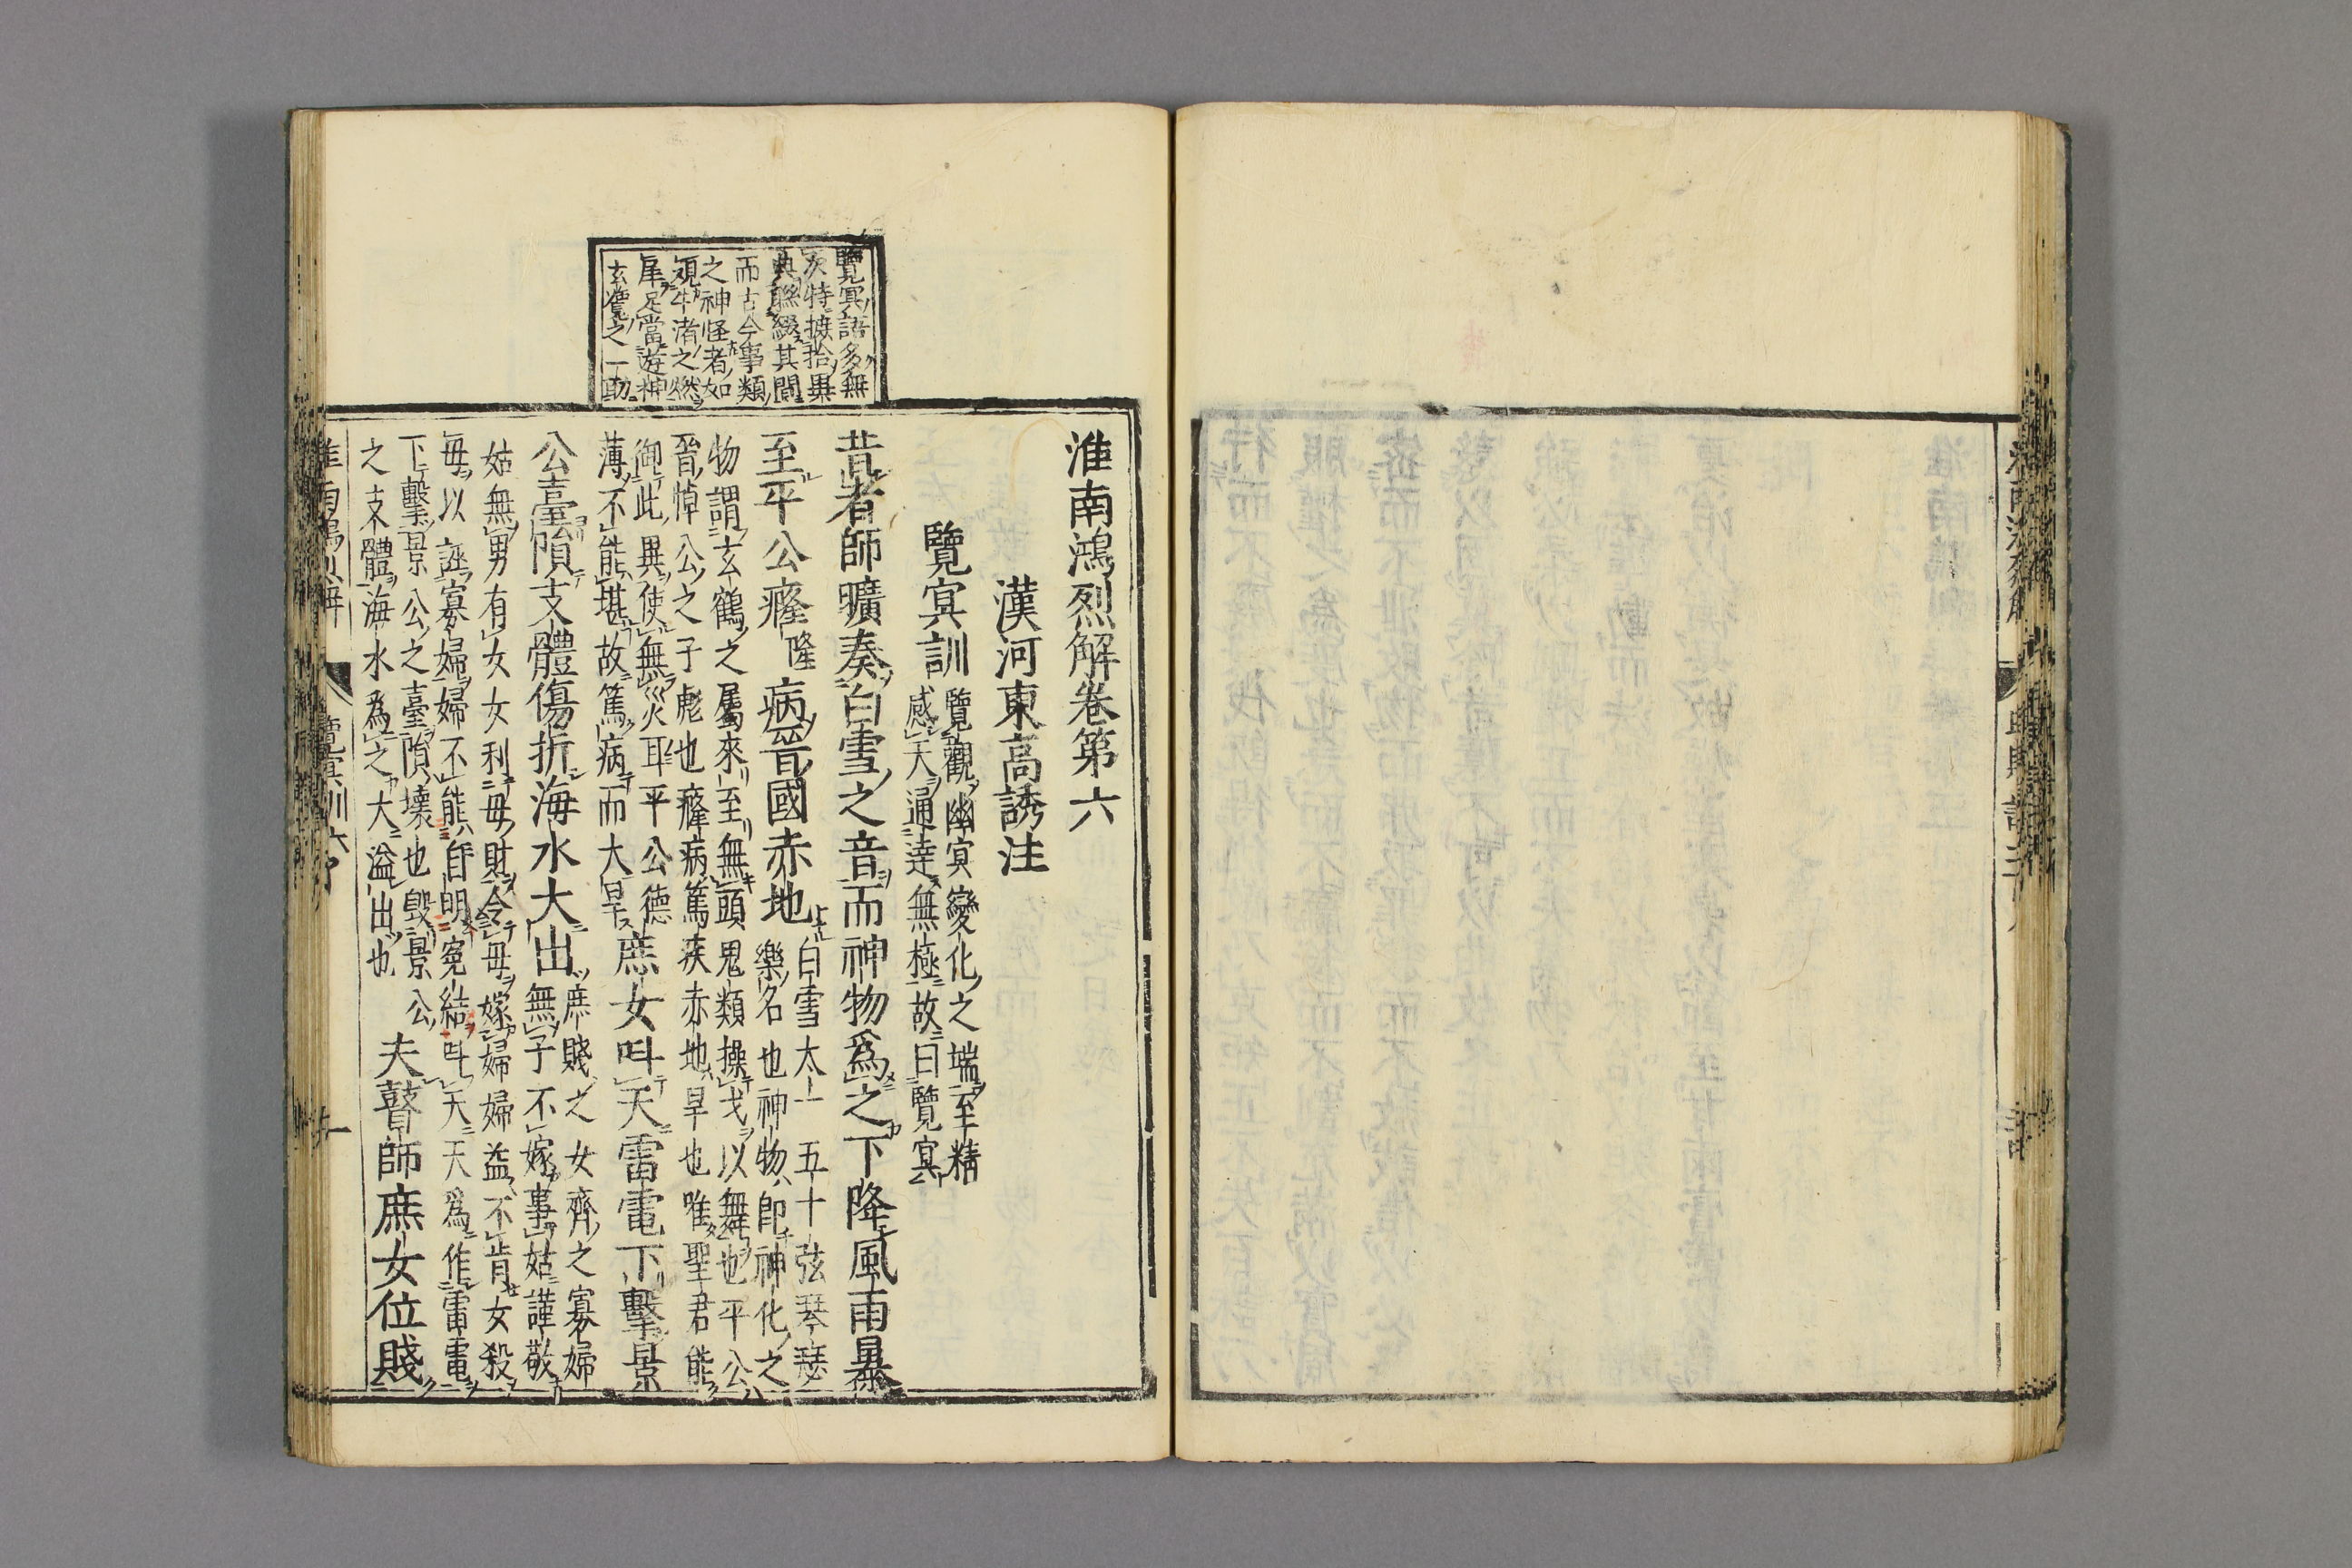 覽冥語多無
次特摭拾異
典聯綴其間
而古今事類
之神怪者如
視牛渚之燃
犀足當遊神
玄覽之一助
淮南鴻烈解卷第六
漢河東高誘注
覽冥訓
覽觀幽冥變化之端至精
感天通達無極故曰覽冥
昔者師曠奏白雪之音而神物爲之下降風雨暴
至平公癃
隆
病晉國赤地
白雪太一五十弦琴瑟
樂名也神物即神化之
物謂玄鶴之屬來至無頭鬼類操戈以舞也平公
晉悼公之子彪也癃病篤疾赤地旱也唯聖君能
御此異使無災耳平公德
薄不能堪故篤病而大旱
庶女叫天雷電下擊景
公臺隕支體傷折海水大出
庶賤之女齊之寡婦
無子不嫁事姑謹敬
姑無男有女女利母財令母嫁婦婦益不肯女殺
母以誣寡婦婦不能自明寃結叫天天爲作雷電
下擊景公之臺隕壊也毀景公
之支體海水爲之大溢出也
夫瞽師庶女位賤
覽冥訓六
一